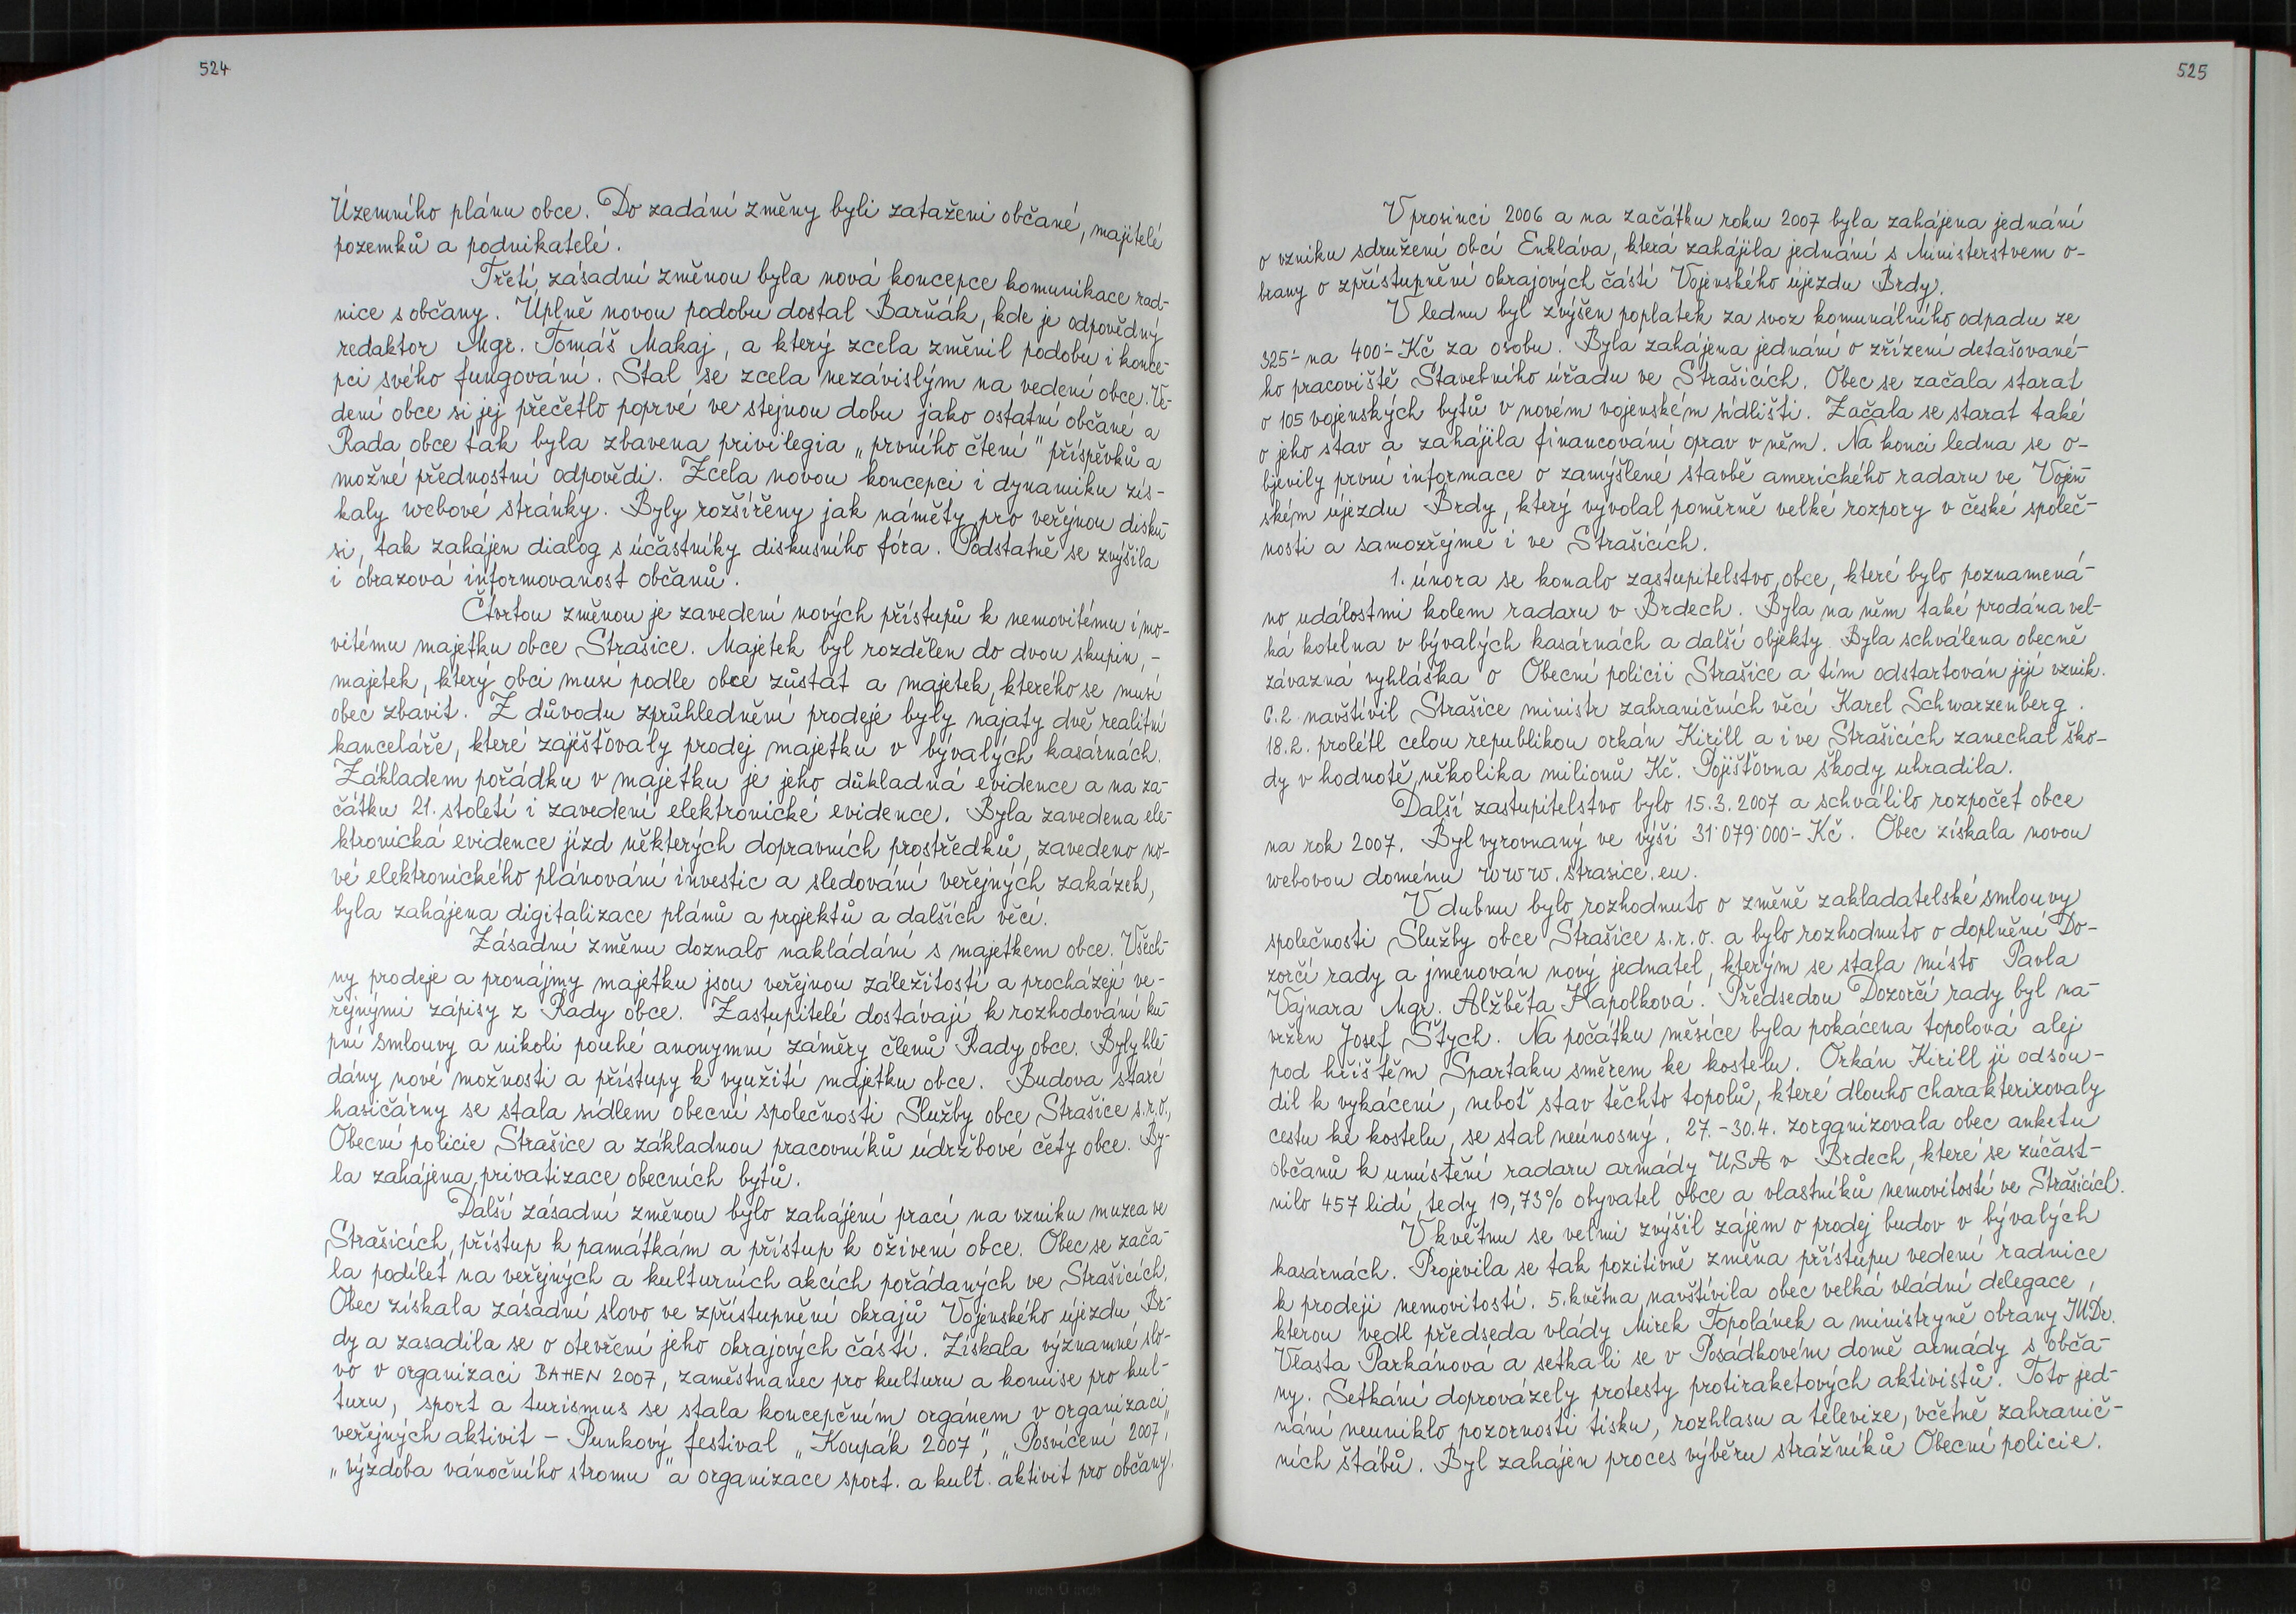 524
Územního plánu obce. Do zadání změny byli zataženi občané, majitelé
pozemků a podnikatelé.
Třetí zásadní změnou byla nová koncepce komunikace rad-
nice s občany. Úplně novou podobu dostal Barňák, kde je odpovědný
redaktor Mgr. Tomáš Makaj, a který zcela změnil podobu i konce-
pci svého fungování. Stal se zcela nezávislým na vedení obce. Ve-
dení obce si jej přečetlo poprvé ve stejnou dobu jako ostatní občané a
Rada obce tak byla zbavena privilegia „prvního čtení" příspěvků a
možné přednostní odpovědi. Zcela novou koncepci i dynamiku zís-
kaly webové stránky. Byly rozšířeny jak náměty pro veřejnou disku-
si, tak zahájen dialog s účastníky diskusního fóra. Podstatně se zvýšila
i obrazová informovanost občanů.
Čtvrtou změnou je zavedení nových přístupů k nemovitému i mo-
vitému majetku obce Strašice. Majetek byl rozdělen do dvou skupin, -
majetek, který obci musí podle obce zůstat a majetek, kterého se musí
obec zbavit. Z důvodu zprůhlednění prodeje byly najaty dvě realitní
kanceláře, které zajišťovaly prodej majetku v bývalých kasárnách.
Základem pořádku v majetku je jeho důkladná evidence a na za-
čátku 21. století i zavedení elektronické evidence. Byla zavedena ele-
ktronická evidence jízd některých dopravních prostředků, zavedeno no-
vé elektronického plánování investic a sledování veřejných zakázek,
byla zahájena digitalizace plánů a projektů a dalších věcí.
Zásadní změnu doznalo nakládání s majetkem obce. Všech-
ny prodeje a pronájmy majetku jsou veřejnou záležitostí a procházejí ve-
řejnými zápisy z Rady obce. Zastupitelé dostávají k rozhodování ku-
pní smlouvy a nikoli pouhé anonymní záměry členů Rady obce. Byly hle-
dány nové možnosti a přístupy k využití majetku obce. Budova staré
hasičárny se stala sídlem obecní společnosti Služby obce Strašice s.r.o.,
Obecní policie Strašice a základnou pracovníků údržbové čety obce. By-
la zahájena privatizace obecních bytů.
Další zásadní změnou bylo zahájení prací na vzniku muzea ve
Strašicích, přístup k památkám a přístup k oživení obce. Obec se zača-
la podílet na veřejných a kulturních akcích pořádaných ve Strašicích.
Obec získala zásadní slovo ve zpřístupnění okrajů Vojenského újezdu Br-
dy a zasadila se o otevření jeho okrajových částí. Získala významné slo-
vo v organizaci BAHEN 2007, zaměstnanec pro kulturu a komise pro kul-
turu, sport a turismus se stala koncepčním orgánem v organizaci
veřejných aktivit – Punkový festival „Koupák 2007", „Posvícení 2007",
„výzdoba vánočního stromu" a organizace sport. a kult. aktivit pro občany.
525
V prosinci 2006 a na začátku roku 2007 byla zahájena jednání
o vzniku sdružení obcí Enkláva, která zahájila jednání s Ministerstvem o-
brany o zpřístupnění okrajových částí Vojenského újezdu Brdy.
V lednu byl zvýšen poplatek za svoz komunálního odpadu ze
325.- na 400.- Kč za osobu. Byla zahájena jednání o zřízení detašované-
ho pracoviště Stavebního úřadu ve Strašicích. Obec se začala starat
o 105 vojenských bytů v novém vojenském sídlišti. Začala se starat také
o jeho stav a zahájila financování oprav v něm. Na konci ledna se o-
bjevily první informace o zamýšlené stavbě amerického radaru ve Vojen-
ském újezdu Brdy, který vyvolal poměrně velké rozpory v české společ-
nosti a samozřejmě i ve Strašicích.
1. února se konalo zastupitelstvo obce, které bylo poznamená-
no událostmi kolem radaru v Brdech. Byla na něm také prodána vel-
ká kotelna v bývalých kasárnách a další objekty. Byla schválena obecně
závazná vyhláška o Obecní policii Strašice a tím odstartován její vznik.
6.2. navštívil Strašice ministr zahraničních věcí Karel Schwarzenberg.
18.2. prolétl celou republikou orkán Kirill a i ve Strašicích zanechal ško-
dy v hodnotě několika milionů Kč. Pojišťovna škody uhradila.
Další zastupitelstvo bylo 15.3.2007 a schválilo rozpočet obce
na rok 2007. Byl vyrovnaný ve výši 31.079.000.- Kč. Obec získala novou
webovou doménu www.strasice.eu.
V dubnu bylo rozhodnuto o změně zakladatelské smlouvy
společnosti Služby obce Strašice s.r.o. a bylo rozhodnuto o doplnění Do-
zorčí rady a jmenován nový jednatel, kterým se stala místo Pavla
Vajnara Mgr. Alžběta Kapolková. Předsedou Dozorčí rady byl na-
vržen Josef Štych. Na počátku měsíce byla pokácena topolová alej
pod hřištěm Spartaku směrem ke kostelu. Orkán Kirill ji odsou-
dil k vykácení, neboť stav těchto topolů, které dlouho charakterizovaly
cestu ke kostelu, se stal neúnosný. 27.-30.4. zorganizovala obec anketu
občanů k umístění radaru armády USA v Brdech, které se zúčast-
nilo 457 lidí, tedy 19,73% obyvatel obce a vlastníků nemovitostí ve Strašicích.
V květnu se velmi zvýšil zájem o prodej budov v bývalých
kasárnách. Projevila se tak pozitivně změna přístupu vedení radnice
k prodeji nemovitostí. 5. května navštívila obec velká vládní delegace,
kterou vedl předseda vlády Mirek Topolánek a ministryně obrany JUDr.
Vlasta Parkanová a setkali se v Posádkovém domě armády s obča-
ny. Setkání doprovázely protesty protiraketových aktivistů. Toto jed-
nání neuniklo pozornosti tisku, rozhlasu a televize, včetně zahranič-
ních štábů. Byl zahájen proces výběru strážníků Obecní policie.